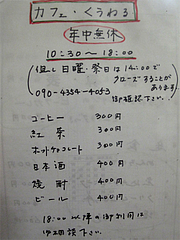 カフェ・くうねる
年中無休
10:30〜18:00
(但し日曜・祭日は14:00で
クローズすることが
あります。
090-4354-4053
御確認下さい。)
コーヒー 300円
紅茶 300円
ホットチョコレート 300円
日本酒 400円
焼酎 400円
ビール 400円
18:00以降の御利用は
御相談下さい。